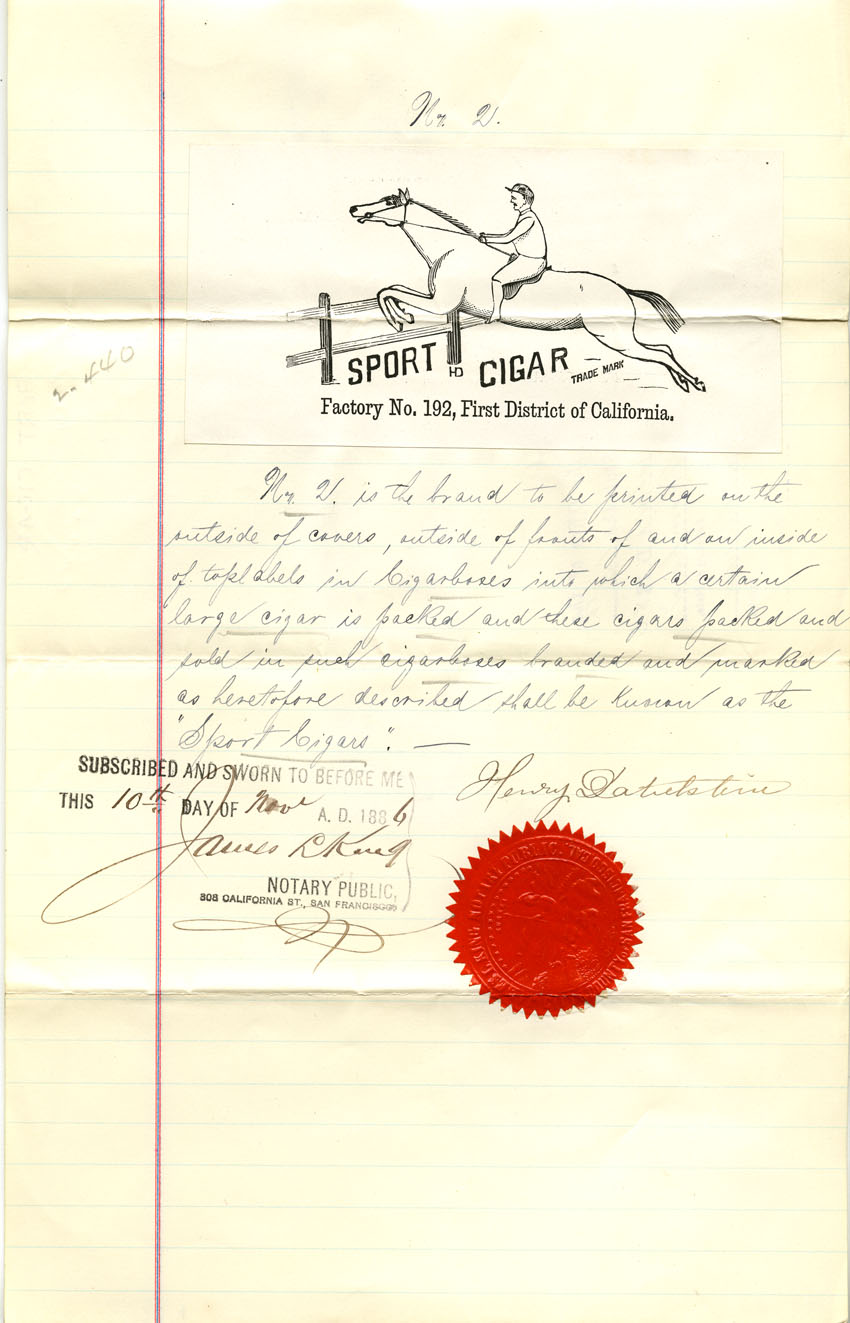 No. 2.
SPORT HD CIGAR TRADE MARK
Factory No. 192, First District of California.
2. 440
No. 2. is the brand to be printed on the
outside of covers, outside of fronts of and on inside
of toplabels in Cigarboxes into which a certain
large cigar is packed and these cigars packed and
sold in such cigarboxes branded and marked
as heretofore described shall be known as the
"Sport Cigars". —
SUBSCRIBED AND SWORN TO BEFORE ME
THIS 10th DAY OF Novr A. D. 1886
Henry
James L King
NOTARY PUBLIC,
308 CALIFORNIA ST., SAN FRANCISCO
NOTARY PUBLIC